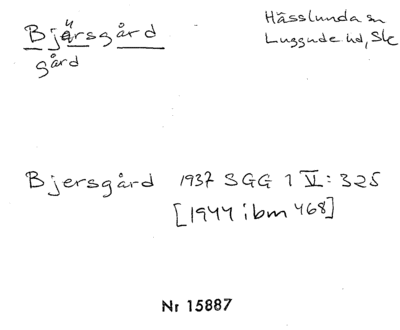 Bjärsgård
gård
Hässlunda sn
Luggude hd, Sk
Bjersgård 1937 SGG 1 V: 325
[1944 ibm 468]
Nr 15887